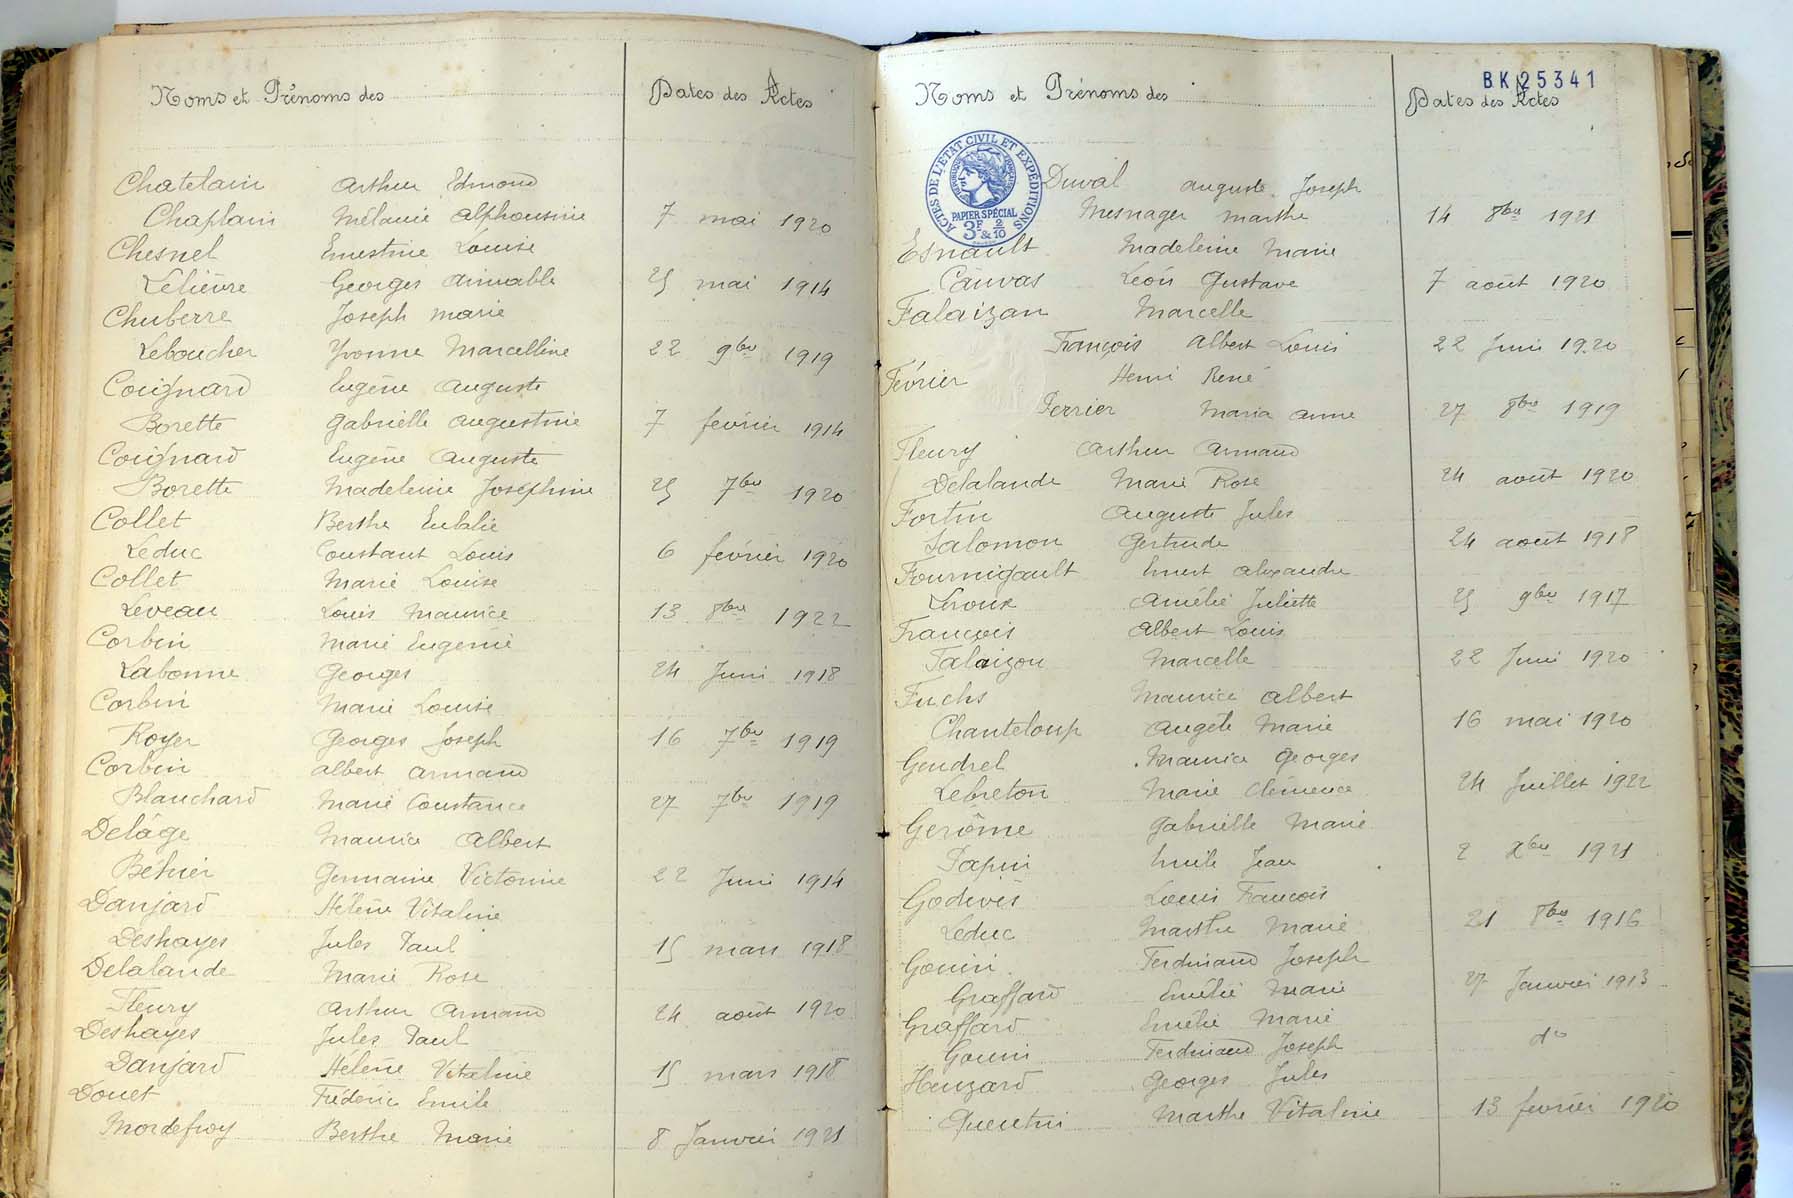 Noms et Prénoms des
Dates des Actes
Chatelain Arthur Edmond
Chaplain Mélanie Alphonsine 7 mai 1920
Chesnel Ernestine Louise
Lelièvre Georges Aimable 25 mai 1914
Chuberre Joseph Marie
Leboucher Yvonne Marcelline 22 9bre 1919
Coignard Eugène Auguste
Borette Gabrielle Augustine 7 février 1914
Coignard Eugène Auguste
Borette Madeleine Joséphine 25 7bre 1920
Collet Berthe Eulalie
Leduc Constant Louis 6 février 1920
Collet Marie Louise
Leveau Louis Maurice 13 8bre 1922
Corbin Marie Eugenie
Labonne Georges 24 Juin 1918
Corbin Marie Louise
Royer Georges Joseph 16 7bre 1919
Corbin Albert Armand
Blanchard Marie Constance 27 7bre 1919
Delâge Maurice Albert
Béhier Germaine Victorine 22 Juin 1914
Danjard Hélène Vitaline
Deshayes Jules Paul 15 mars 1918
Delalande Marie Rose
Fleury Arthur Armand 24 août 1920
Deshayes Jules Paul
Danjard Hélène Vitaline 15 mars 1918
Douet Fréderic Emile
Mordefroy Berthe Marie 8 Janvier 1921
BK 25341
Noms et Prénoms des
Dates des Actes
ACTES DE L'ÉTAT CIVIL ET EXPÉDITIONS
RÉPUBLIQUE FRANÇAISE
PAPIER SPÉCIAL
3F & 2/10
Duval Auguste Joseph
Mesnager Marthe 14 8bre 1921
Esnault Madeleine Marie
Cauvas Léon Gustave 7 août 1920
Falaizan Marcelle
François Albert Louis 22 Juin 1920
Février Henri René
Perrier Maria Anne 27 8bre 1919
Fleury Arthur Armand
Delalande Marie Rose 24 août 1920
Fortin Auguste Jules
Salomon Gertrude 24 août 1918
Fournigault Ernest Alexandre
Leroux Amélie Juliette 25 9bre 1917
François Albert Louis
Falaizou Marcelle 22 Juin 1920
Fuchs Maurice Albert
Chanteloup Angèle Marie 16 mai 1920
Gendrel Maurice Georges
Lebreton Marie Clémence 24 Juillet 1922
Gerôme Gabrielle Marie
Papin Emile Jean 2 Xbre 1921
Godivès Louis François
Leduc Marthe Marie 21 8bre 1916
Gouin Ferdinand Joseph
Graffard Emélie Marie 27 Janvier 1913
Graffard Emélie Marie
Gouin Ferdinand Joseph do
Heuzard Georges Jules
Quentin Marthe Vitaline 13 février 1920